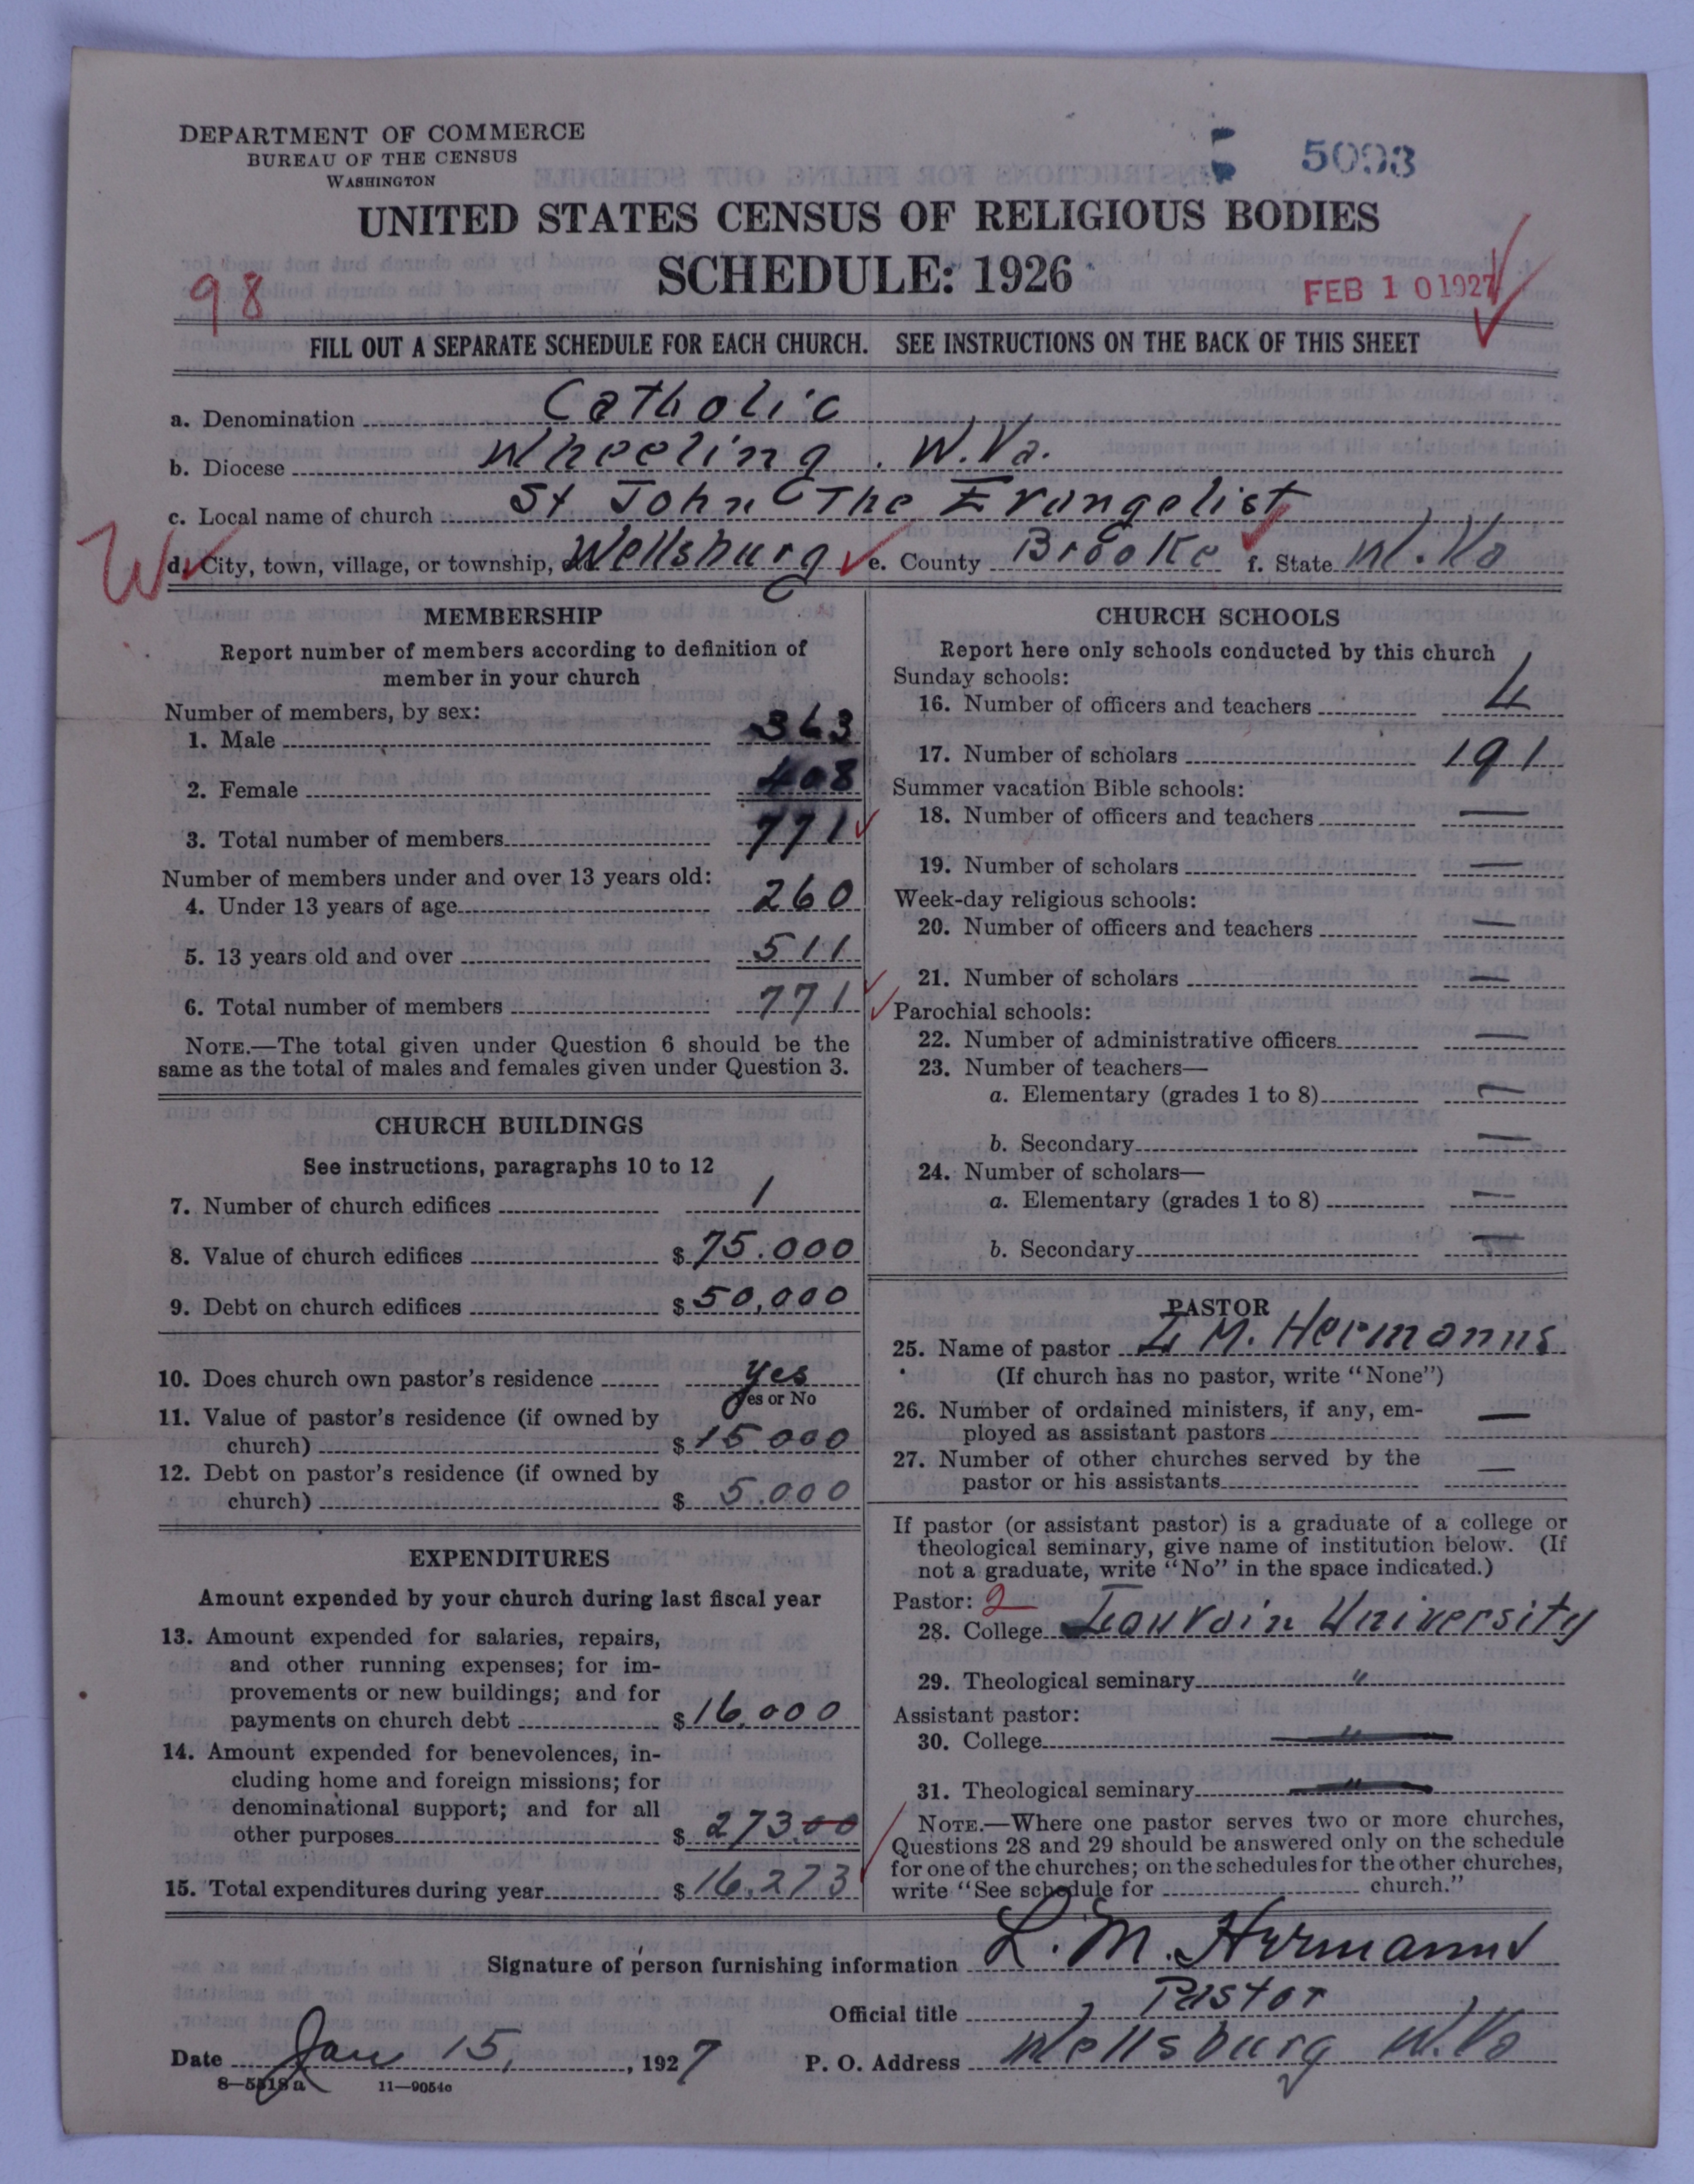 DEPARTMENT OF COMMERCE
BUREAU OF THE CENSUS
WASHINGTON
5093
UNITED STATES CENSUS OF RELIGIOUS BODIES
SCHEDULE: 1926
98
FEB 10 1927
FILL OUT A SEPARATE SCHEDULE FOR EACH CHURCH. SEE INSTRUCTIONS ON THE BACK OF THIS SHEET
a. Denomination Catholic
b. Diocese Wheeling. W.Va.
c. Local name of church St John The Evangelist
W d. City, town, village, or township, etc Wellsburg e. County Brooke f. State W.Va
MEMBERSHIP
Report number of members according to definition of
member in your church
Number of members, by sex:
1. Male 363
2. Female 408
3. Total number of members 771
Number of members under and over 13 years old:
4. Under 13 years of age 260
5. 13 years old and over 511
6. Total number of members 771
NOTE.—The total given under Question 6 should be the
same as the total of males and females given under Question 3.
CHURCH BUILDINGS
See instructions, paragraphs 10 to 12
7. Number of church edifices 1
8. Value of church edifices $75.000
9. Debt on church edifices $50,000
10. Does church own pastor's residence yes
Yes or No
11. Value of pastor's residence (if owned by
church) $15 000
12. Debt on pastor's residence (if owned by
church) $5.000
EXPENDITURES
Amount expended by your church during last fiscal year
13. Amount expended for salaries, repairs,
and other running expenses; for im-
provements or new buildings; and for
payments on church debt $16,000
14. Amount expended for benevolences, in-
cluding home and foreign missions; for
denominational support; and for all
other purposes $273.00
15. Total expenditures during year $16,273
CHURCH SCHOOLS
Report here only schools conducted by this church
Sunday schools:
16. Number of officers and teachers 4
17. Number of scholars 191
Summer vacation Bible schools:
18. Number of officers and teachers —
19. Number of scholars —
Week-day religious schools:
20. Number of officers and teachers —
21. Number of scholars —
Parochial schools:
22. Number of administrative officers —
23. Number of teachers—
a. Elementary (grades 1 to 8) —
b. Secondary —
24. Number of scholars—
a. Elementary (grades 1 to 8) —
b. Secondary —
PASTOR
25. Name of pastor L M. Hermanns
(If church has no pastor, write "None")
26. Number of ordained ministers, if any, em-
ployed as assistant pastors —
27. Number of other churches served by the
pastor or his assistants —
If pastor (or assistant pastor) is a graduate of a college or
theological seminary, give name of institution below. (If
not a graduate, write "No" in the space indicated.)
Pastor: 2
28. College Louvain University
29. Theological seminary "
Assistant pastor:
30. College "
31. Theological seminary "
NOTE.—Where one pastor serves two or more churches,
Questions 28 and 29 should be answered only on the schedule
for one of the churches; on the schedules for the other churches,
write "See schedule for church."
Signature of person furnishing information L. M. Hermanns
Official title Pastor
Date Jan 15, 1927 P. O. Address Wellsburg W.Va
8—5518a 11—9054c